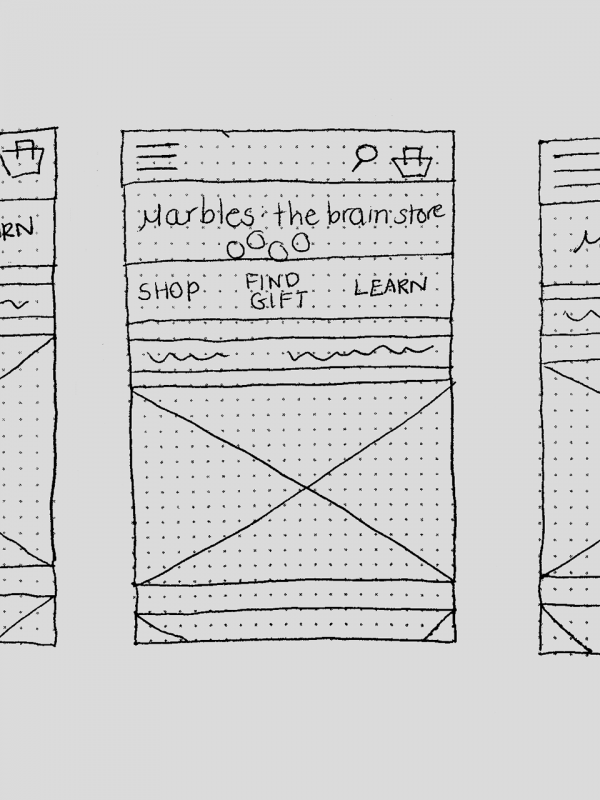 Marbles: the brain store
SHOP FIND GIFT LEARN
RN
M